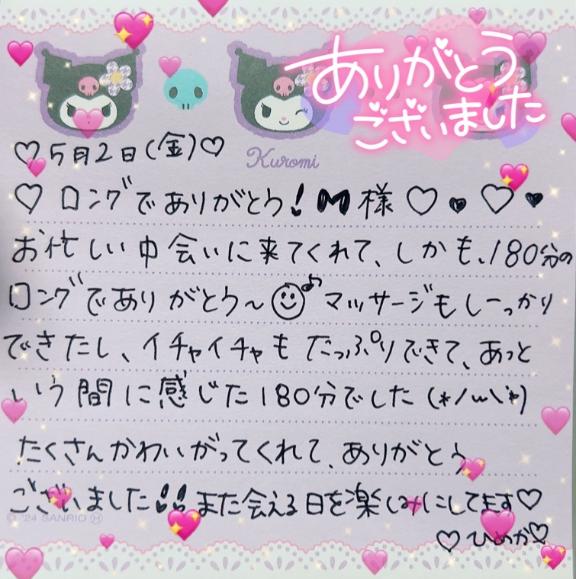 ありがとう
ございました
♡5月2日(金)♡
Kuromi
♡ ロングでありがとう!M様♡♥♡♥
お忙しい中会いに来てくれて、しかも、180分の
ロングでありがとう〜☺♪マッサージもしーっかり
できたし、イチャイチャもたっぷりできて、あっと
いう間に感じた180分でした(*ノωヾ*)
たくさんかわいがってくれて、ありがとう
ございました!!また会える日を楽しみにしてます♡
© '24 SANRIO
♡ひめか♡